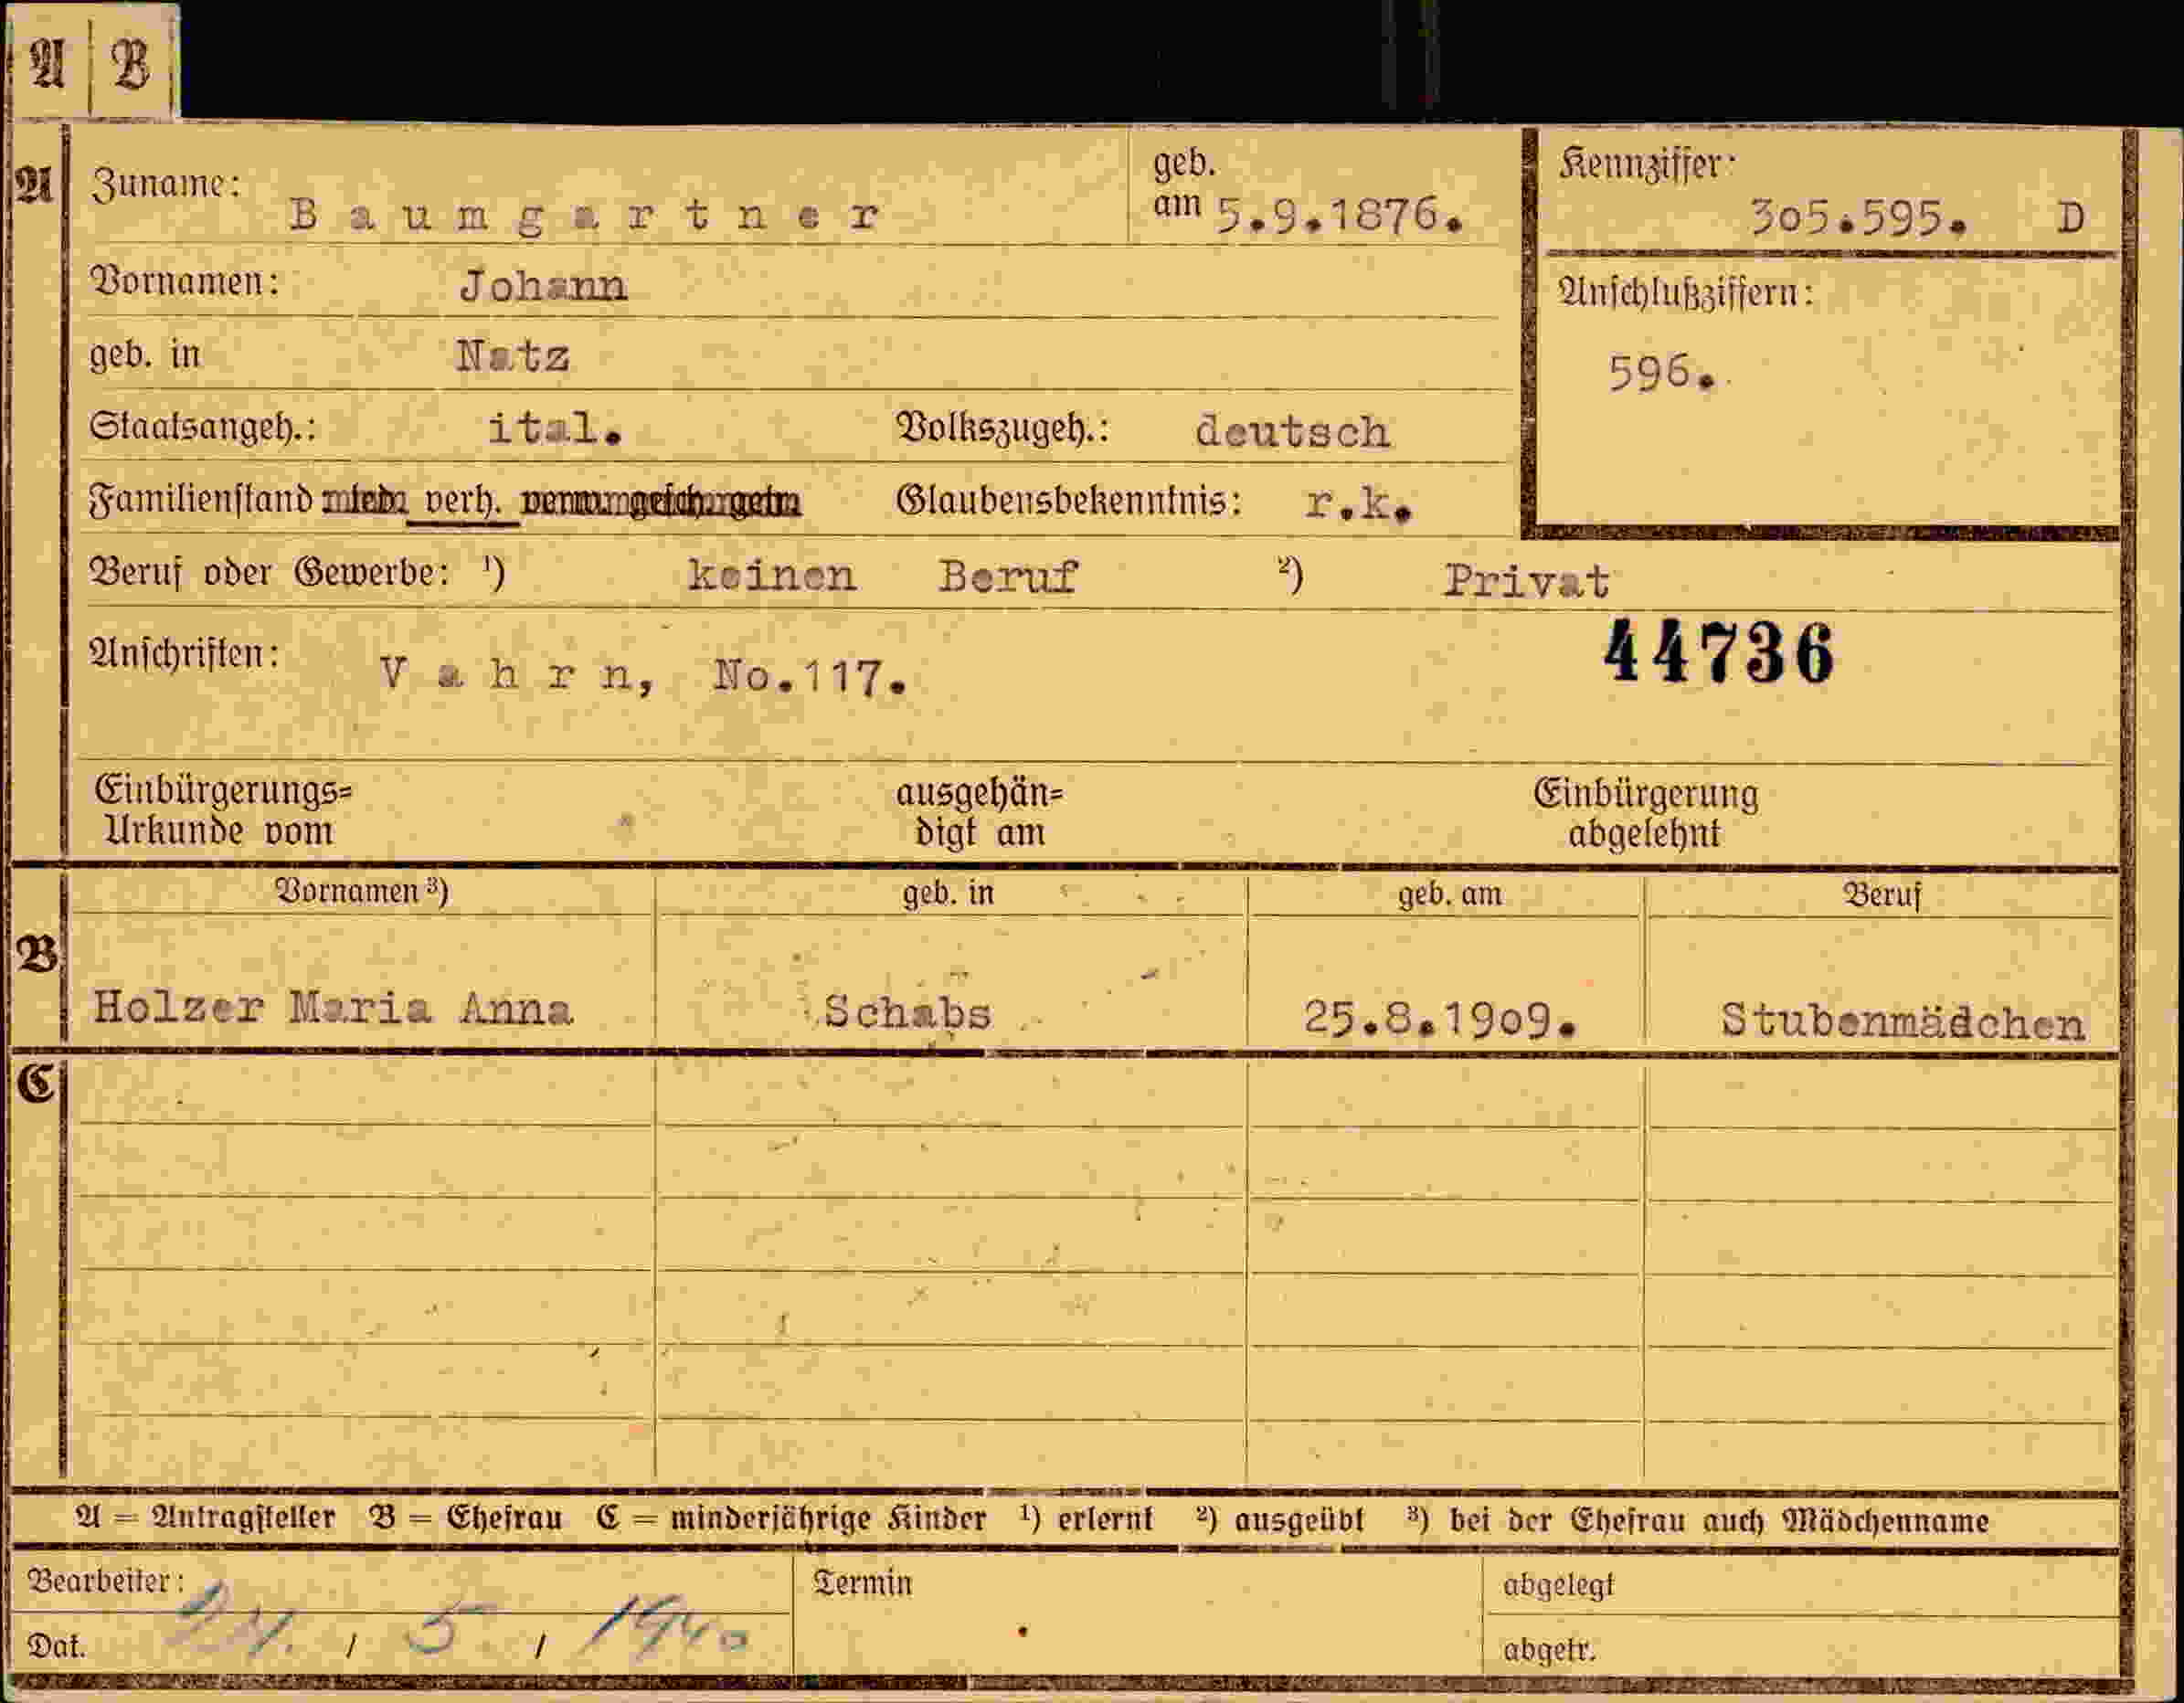 A B
A Zuname: Baumgartner geb. am 5.9.1876.
Kennziffer: 305.595. D
Vornamen: Johann
Anschlußziffern:
geb. in Natz
596.
Staatsangeh.: ital. Volkszugeh.: deutsch
Familienstand verh. Glaubensbekenntnis: r.k.
Beruf oder Gewerbe: ¹) keinen Beruf ²) Privat
44736
Anschriften: Vahrn, No.117.
Einbürgerungs= ausgehän= Einbürgerung
Urkunde vom digt am abgelehnt
Vornamen ³) geb. in geb. am Beruf
B
Holzer Maria Anna Schabs 25.8.1909. Stubenmädchen
C
A = Antragsteller B = Ehefrau C = minderjährige Kinder ¹) erlernt ²) ausgeübt ³) bei der Ehefrau auch Mädchenname
Bearbeiter: Termin abgelegt
Dat. / 5 / 1940 abgetr.